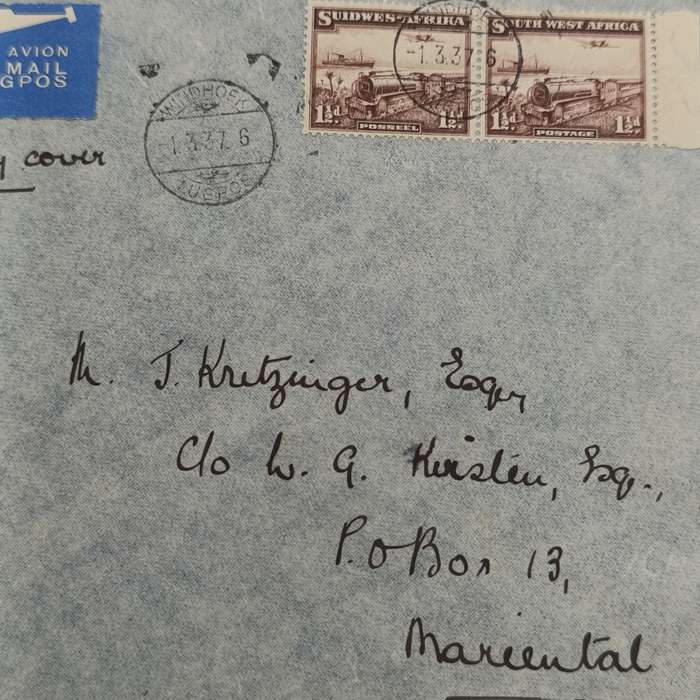 AVION
MAIL
GPOS
cover
WINDHOEK
1.3.37.6
LUGPOS
SUIDWES-AFRIKA
1½d POSSEEL 1½d.
SOUTH WEST AFRICA
1½d POSTAGE 1½d
-1.3.37.6
M. J. Kretzinger, Esq,
c/o W. G. Kirsten, Esq.,
P.O Box 13,
Mariental